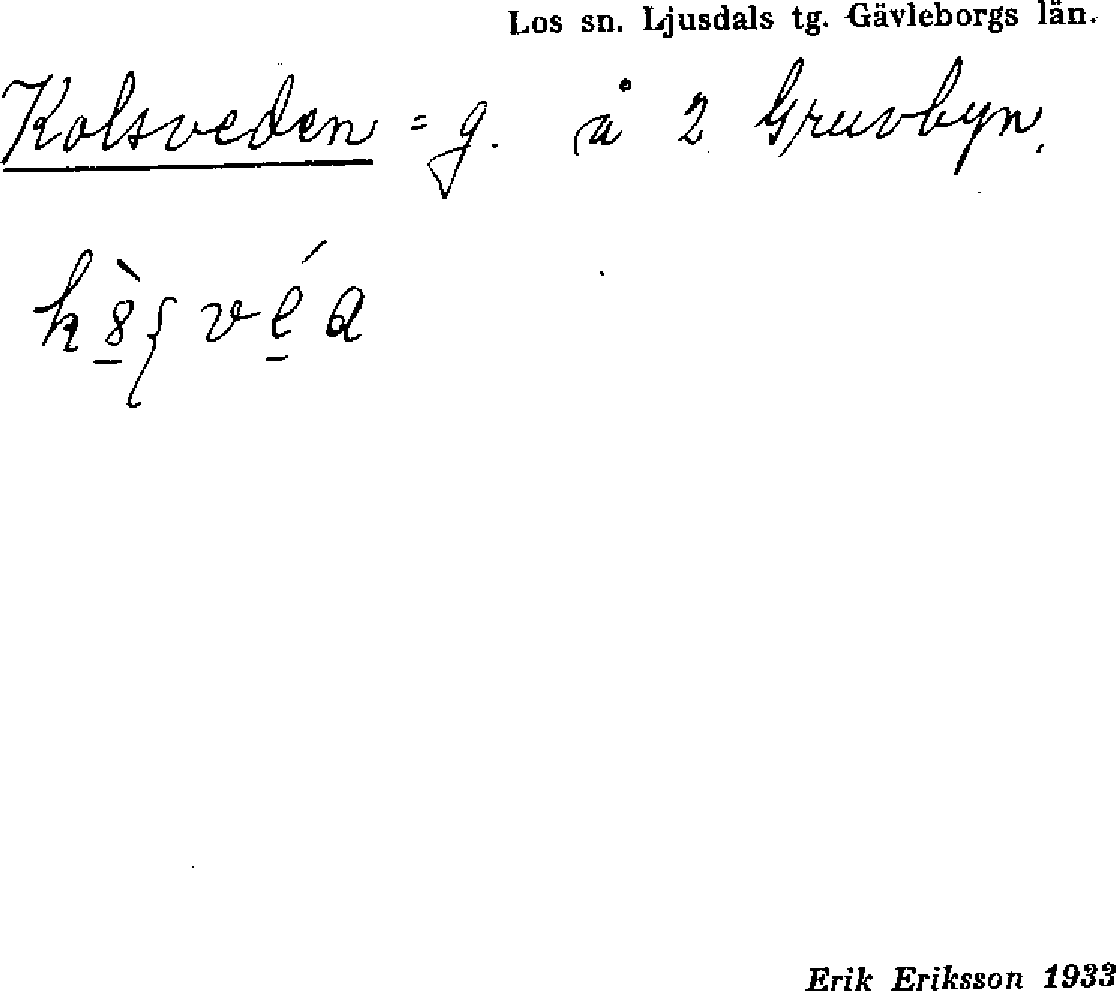 Los sn. Ljusdals tg. Gävleborgs län.
Kolsveden = g. å 2 Gruvbyn.
Erik Eriksson 1933